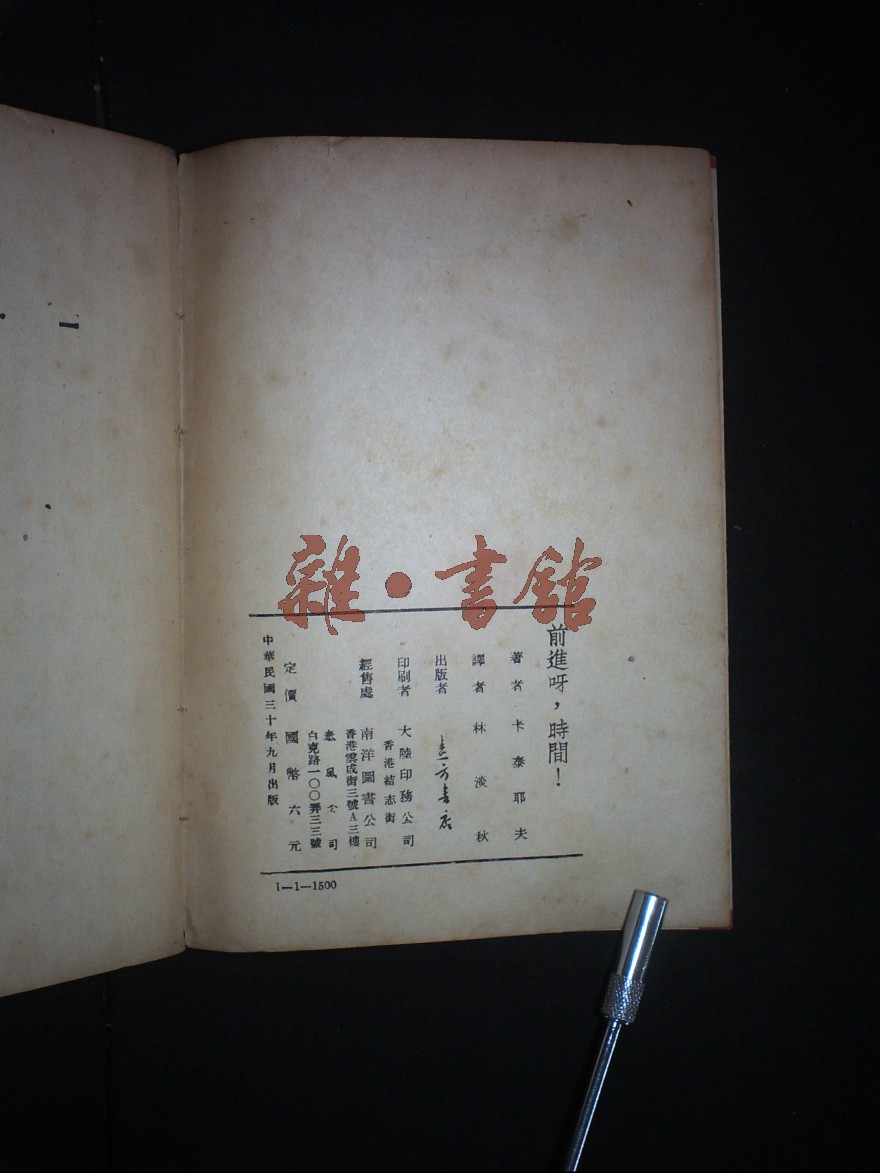 雜·書館
前進呀，時間！
著者 卡泰耶夫
譯者 林淡秋
出版者
印刷者 大陸印務公司
香港結志街
經售處 南洋圖書公司
香港雲咸街三號A三樓
風公司
白克路一〇〇弄三三號
定價 國幣六元
中華民國三十年九月出版
1—1—1500
一